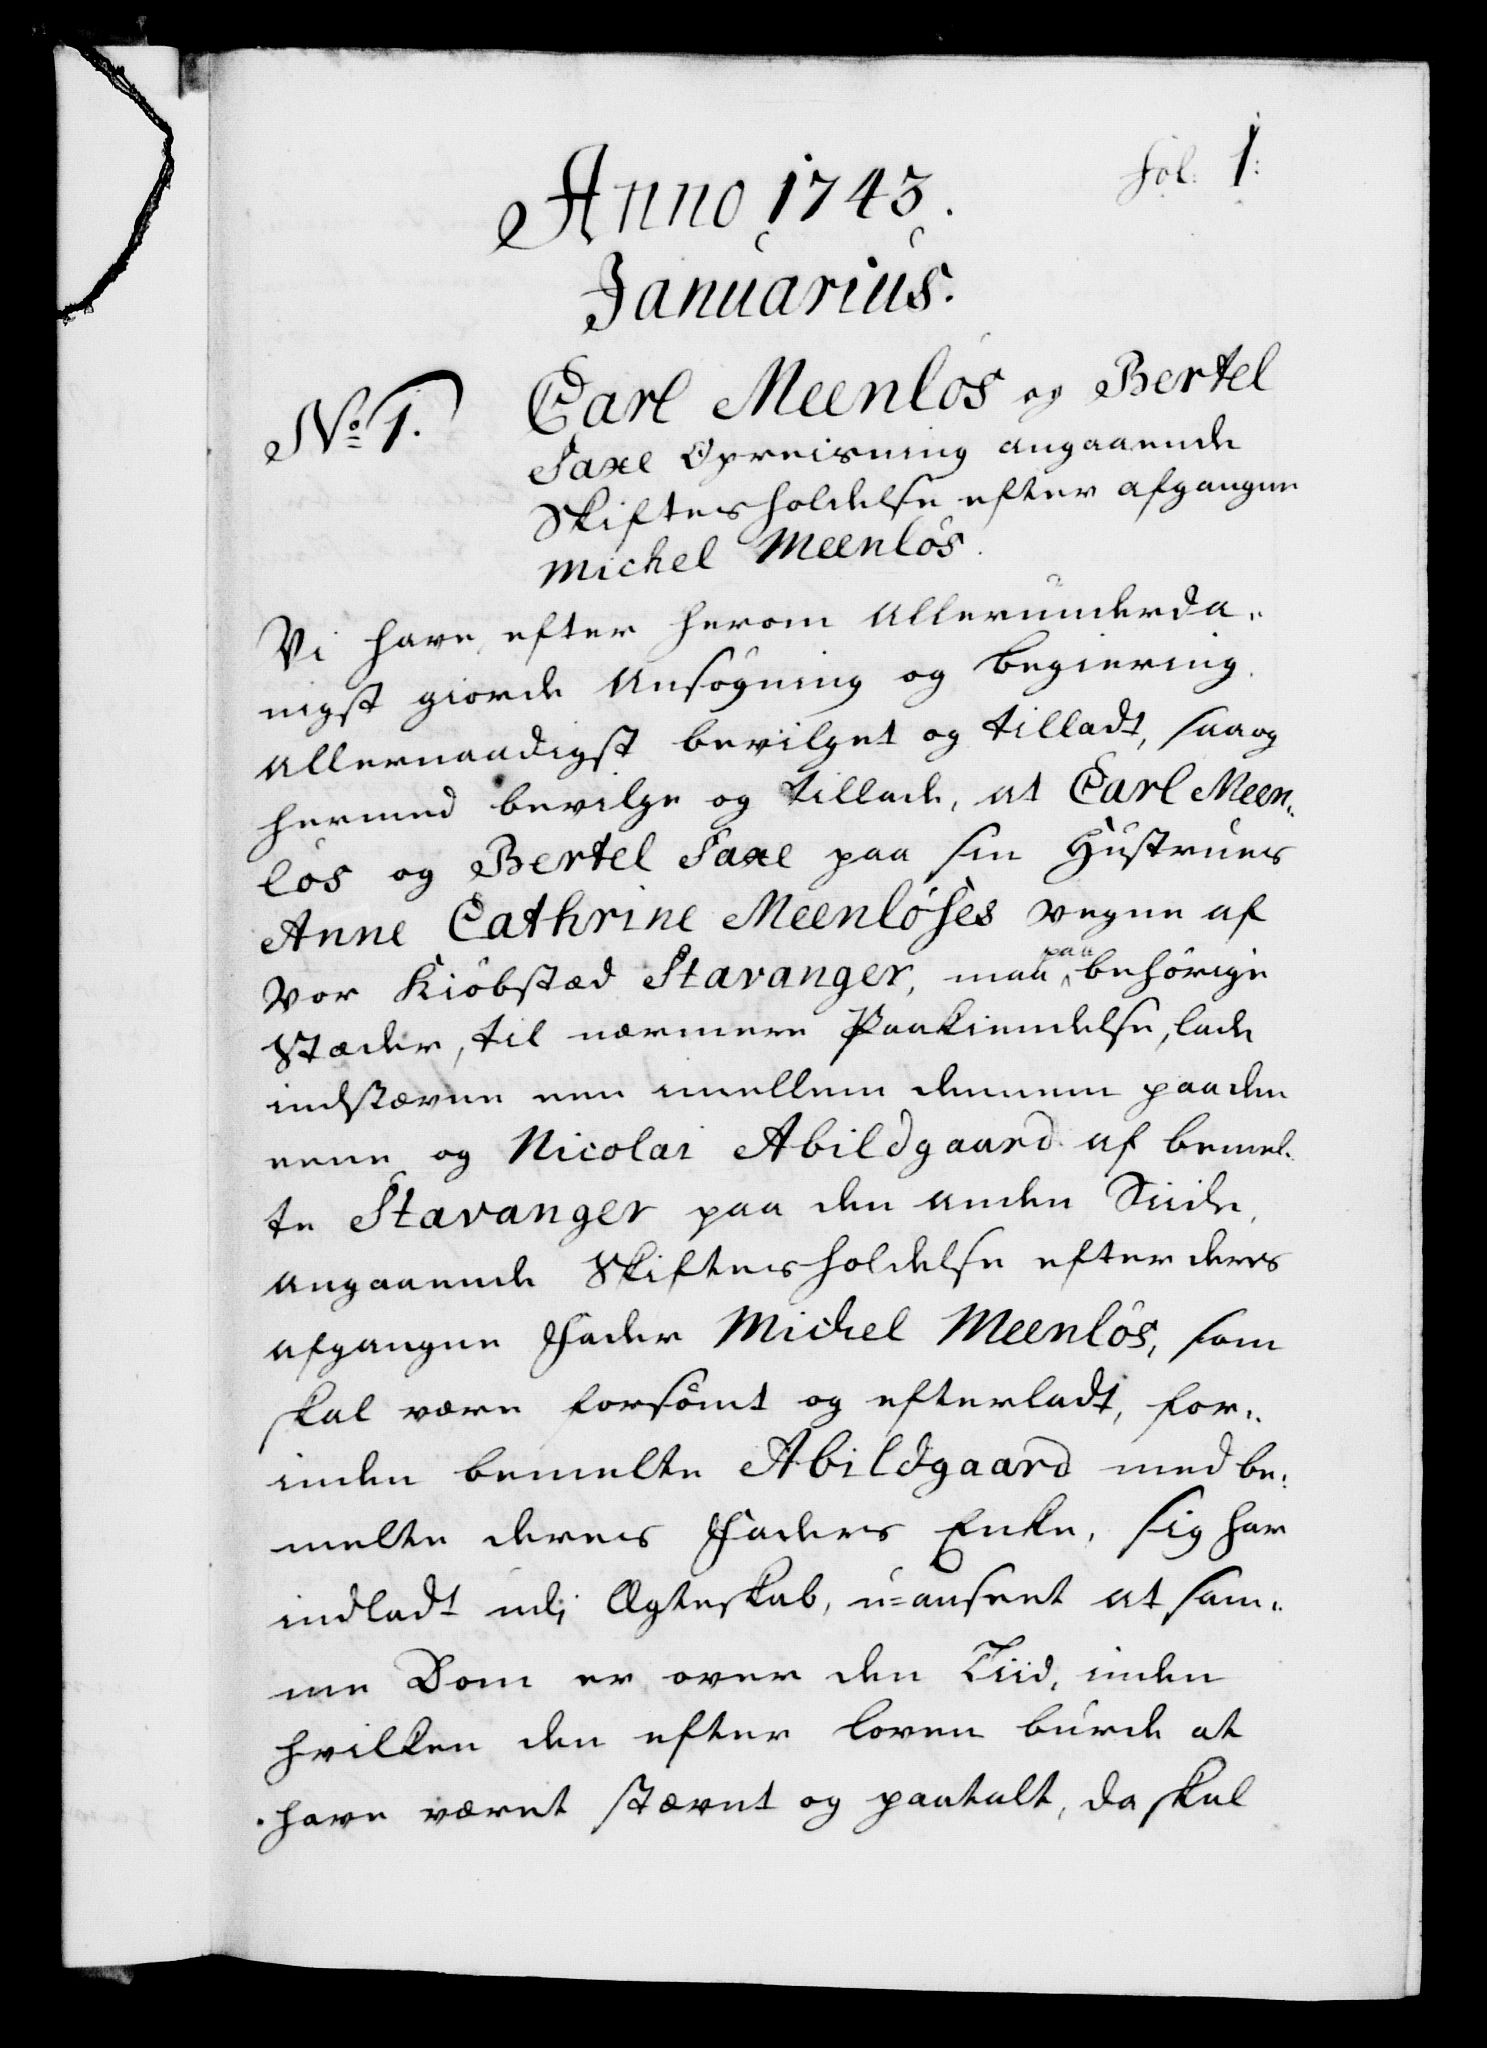 Fol: 1:
Anno 1743.
Januarius.
No 1.
Carl Meenløs og Bertel
Saxe Opreisning angaaende
Skiftes holdelse efter afgangne
Michel Meenløs.
Vi have efter herom Allerunderda,,
nigst giorde Ansøgning og begiering
Allernaadigst bevilget og tilladt, saa og
hermed bevilge og tillade, at Carl Meen,,
løs og Bertel Saxe paa sin Hustrues
Anne Cathrine Meenløses vegne af
vor Kiøbstæd Stavanger, maa paa behørige
Stæder, til nærmere Paakiendelse, lade
indstævne een imellem dennem paa den
eene og Nicolai Abildgaard af bemel,,
te Stavanger paa den anden Siide,
angaaende Skiftes holdelse efter deres
afgangne Fader Michel Meenløs, som
skal være forsømt og efterladt, for,,
inden bemelte Abildgaard med be,,
melte deres Faders Enke, sig har
indladt udj Ægteskab, u-anseet at sam,,
me Dom er over den Tiid, inden
hvilken den efter loven burde at
have været stævnt og paatalt, da skal